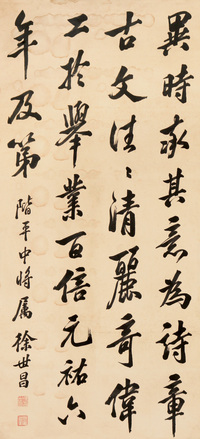 異時承其意為詩章
古文往〻清麗奇偉
工於舉業百倍元祐六
年及第
階平中將属 徐世昌